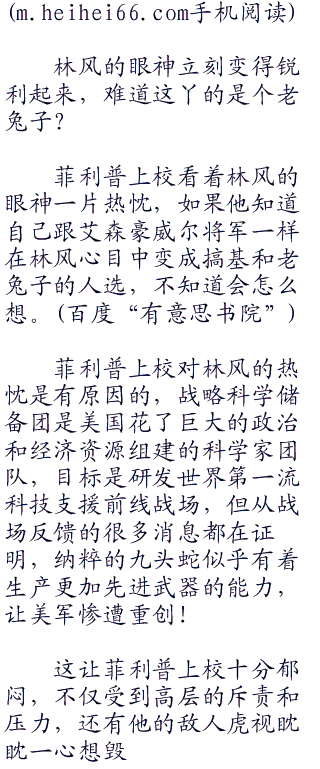 (m.heihei66.com手机阅读)
林风的眼神立刻变得锐
利起来，难道这丫的是个老
兔子？
菲利普上校看着林风的
眼神一片热忱，如果他知道
自己跟艾森豪威尔将军一样
在林风心目中变成搞基和老
兔子的人选，不知道会怎么
想。(百度“有意思书院”)
菲利普上校对林风的热
忱是有原因的，战略科学储
备团是美国花了巨大的政治
和经济资源组建的科学家团
队，目标是研发世界第一流
科技支援前线战场，但从战
场反馈的很多消息都在证
明，纳粹的九头蛇似乎有着
生产更加先进武器的能力，
让美军惨遭重创！
这让菲利普上校十分郁
闷，不仅受到高层的斥责和
压力，还有他的敌人虎视眈
眈一心想毁